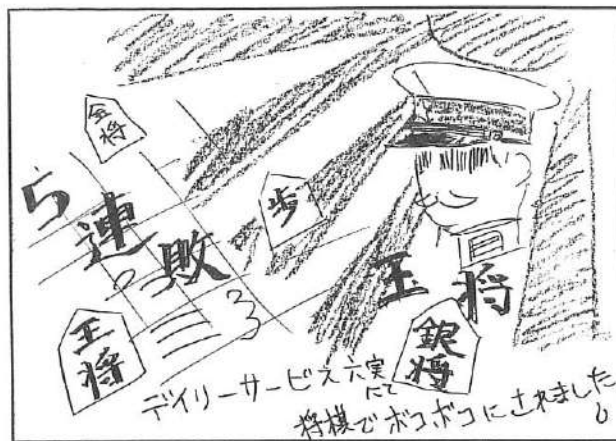 金将
歩
5連敗
王将
王将
銀将
デイリーサービス六実
にて
将棋でボコボコにされました